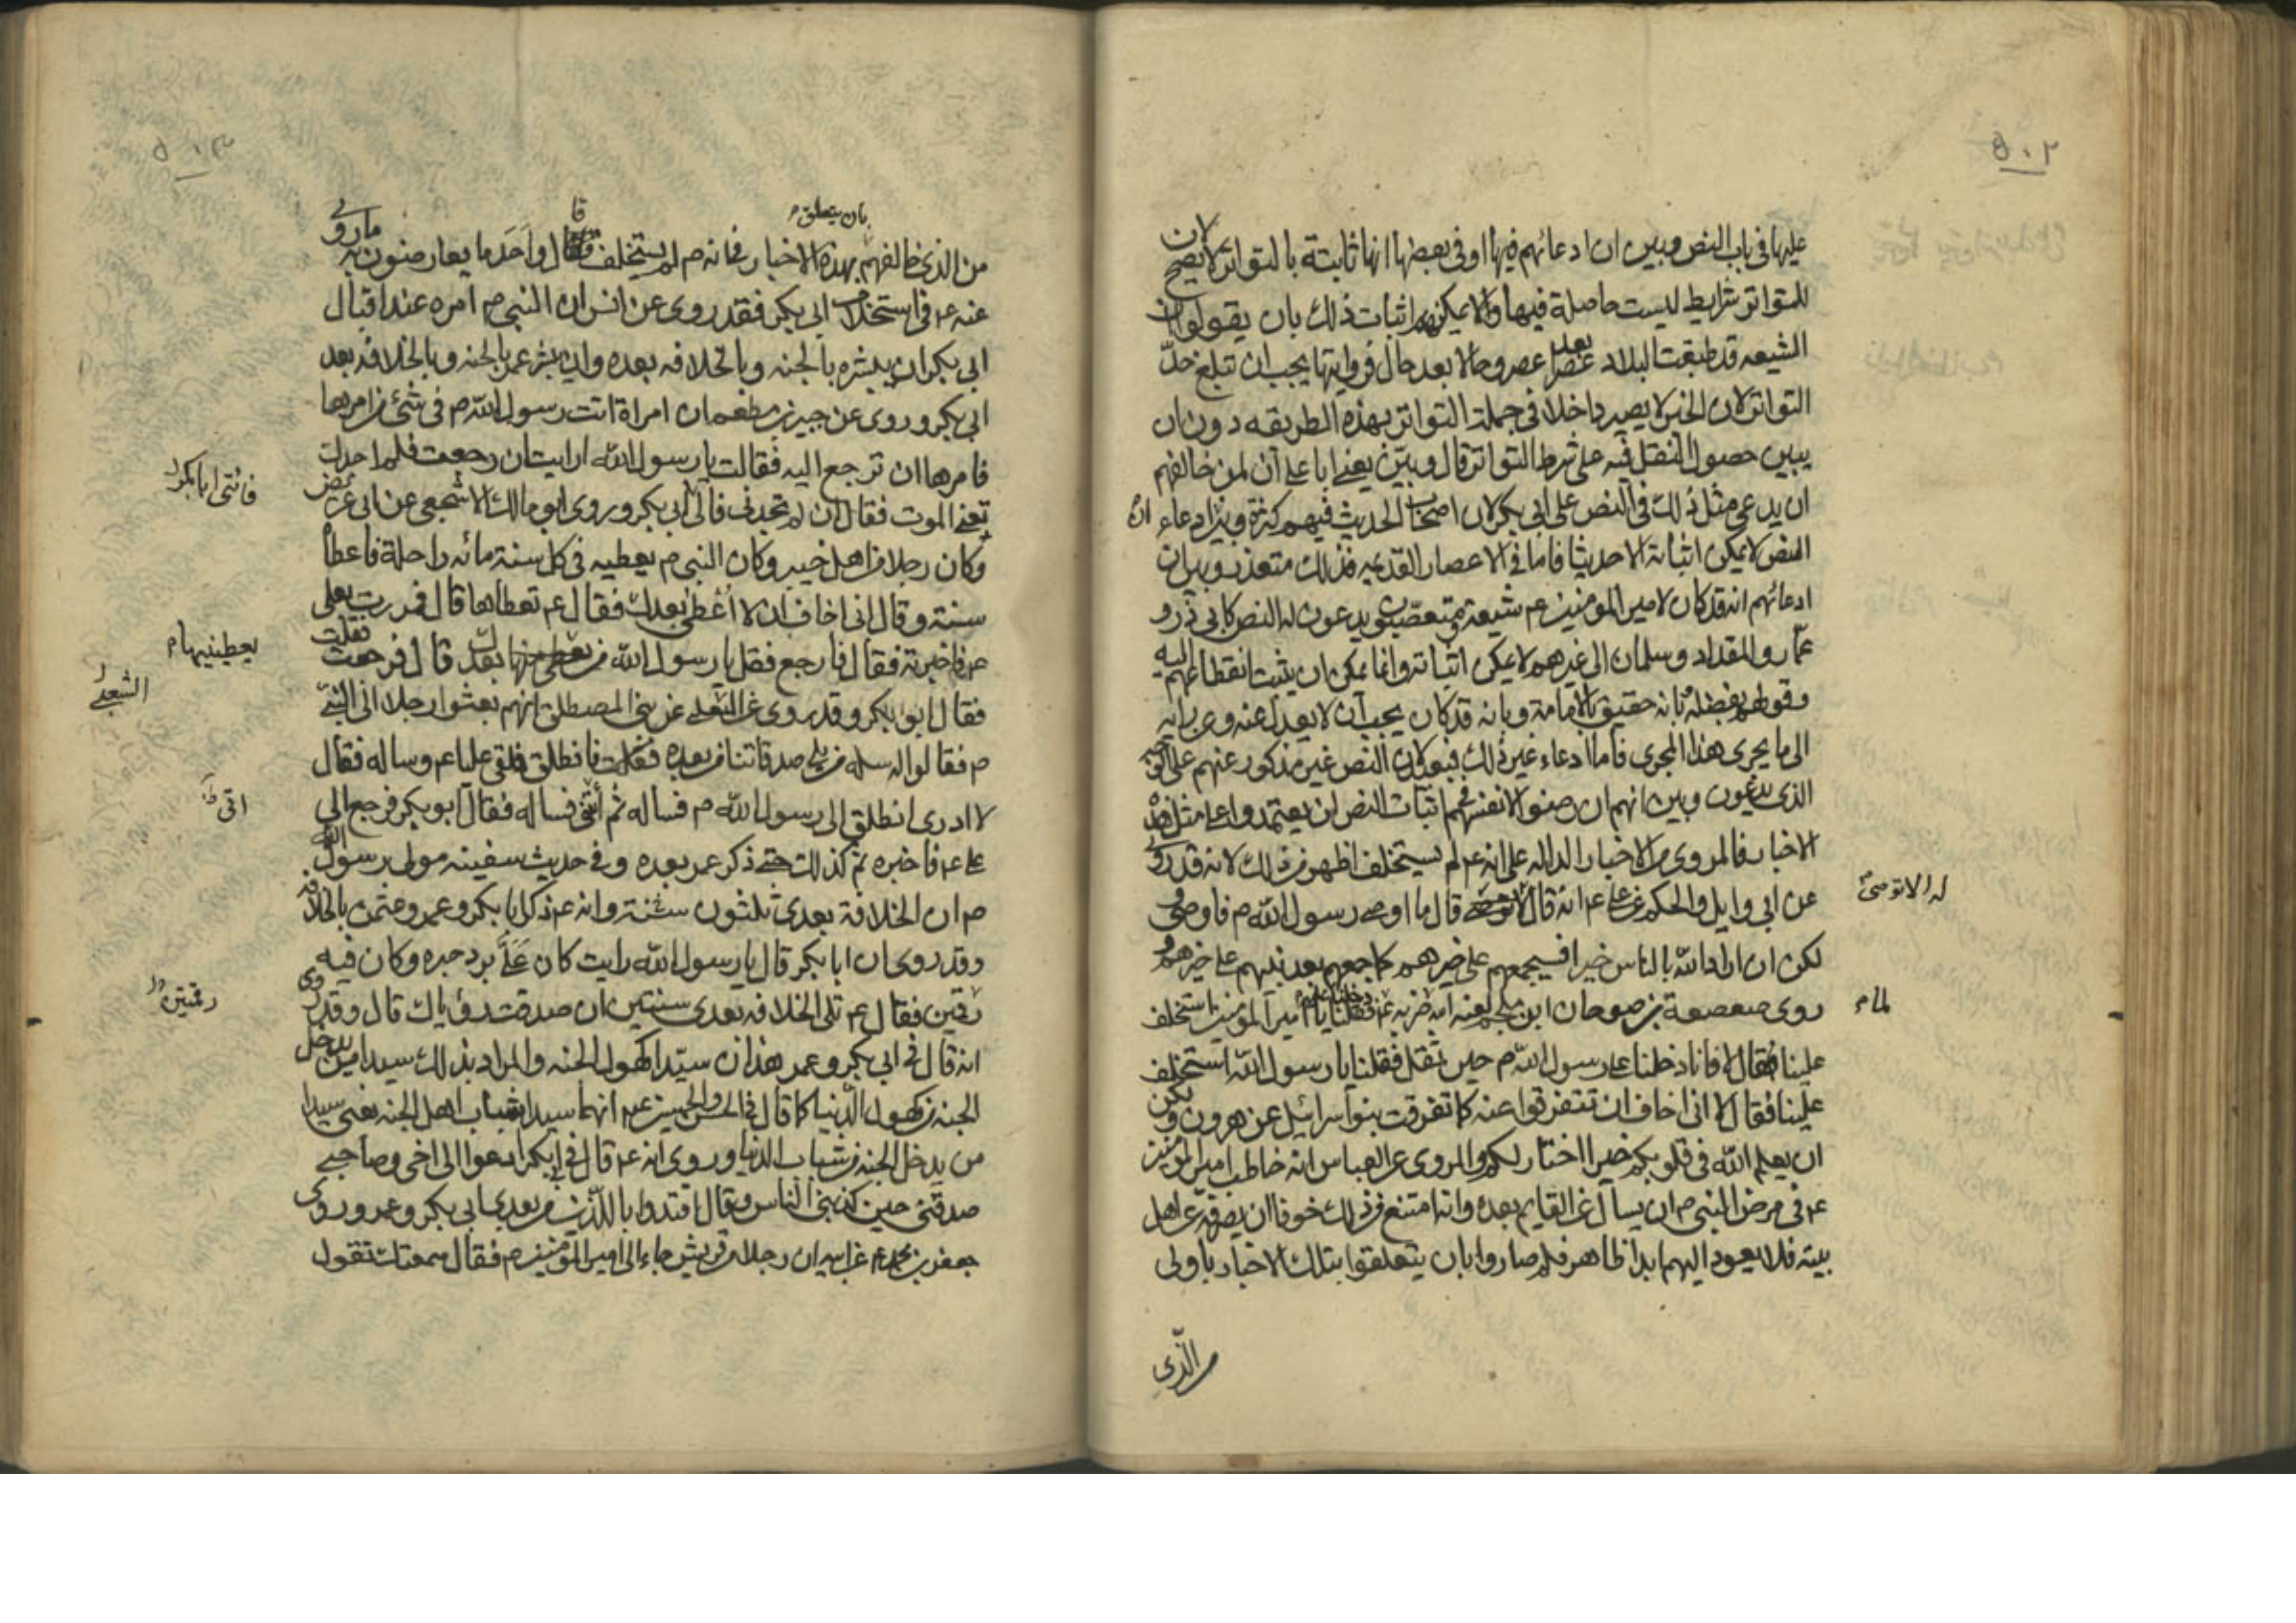 ٥٠٢
عليها في باب النص وبين ان ادعائهم فيها او في بعضها انها ثابتة بالتواتر لا يصح لان
للتواتر شرايط ليست حاصلة فيها ولا يمكنهم اثبات ذلك بان يقولوا ان
الشيعه قد طبقت البلاد عصرا بعد عصر وحالا بعد حال فروايتها يجب ان تبلغ حدّ
التواتر لان الخبر لا يصير داخلا في جملة التواتر بهذه الطريقه دون ان
يبين حصول النقل فيه على شرط التواتر قال وبيّن يعنى ابا على ان لمن خالفهم
ان يدعى مثل ذلك في النص على ابى بكر لان اصحاب الحديث فيهم كثرة وبين ادعاء
ان
النص لا يمكن اثباته الا حديثا فاما في الاعصار القديمه فذلك متعذر وبين ان
ادعائهم انه قد كان لامير المومنين ع شيعة متعصّبون يدعون له النص كابى ذر و
عمّار والمقداد وسلمان الى غيرهم لا يمكن اثباته وانما يمكن ان يثبت انقطاعهم اليه
وقولهم بفضله وبانه حقيق بالامامة وبانه قد كان يجب ان لا يعدل عنه وعن رايه
الى ما يجرى هذا المجرى فاما ادعاء غير ذلك فبعيد لان النص غير مذكور عنهم على الوجه
الذى يدعون وبين انهم ان رضوا لانفسهم في اثبات النص ان يعتمدوا على مثل هذه
الاخبار فالمروى من الاخبار الداله على انه ع لم يستخلف اظهر من ذلك لانه قد روى
عن ابى وايل والحكم عن على ع انه قال قال ما اوصى رسول الله م فاوصى
له الا توصى
لكن ان اراد الله بالناس خيرا فسيجمعهم على خيرهم كما جمعهم بعد نبيهم على خيرهم و
روى صعصعة بن صوحان ان ابن ملجم لعنه الله لما ضربه ع دخلنا عليه فقلنا يا امير المومنين استخلف
لما م
علينا فقال لا فانا دخلنا على رسول الله م حين ثقل فقلنا يا رسول الله استخلف
علينا فقال لا انى اخاف ان تتفرقوا عنه كما تفرقت بنو اسرائيل عن هرون ولكن
ان يعلم الله في قلوبكم خيرا اختار لكم والمروى عن العباس انه خاطب امير المومنين
ع في مرض النبى م ان يسال عن القايم بعده وانه امتنع من ذلك خوفا ان يصرفه عن اهل
بيته فلا يعود اليهم ابدا ظاهر فلم صاروا بان يتعلقوا بتلك الاخبار باولى
من الذى
٥٠٣
من الذى خالفهم بان يتعلق بهذه الاخبار في انه م لم يستخلف قال واحد ما يعارضون به ما روى
عنه ع في استخلاف ابى بكر فقد روى عن انس ان النبى م امره عند اقبال
ابى بكر ان يبشره بالجنه وبالخلافه بعده وان يبشر عمر بالجنه وبالخلافه بعد
ابى بكر وروى عن جبير بن مطعم ان امراة اتت رسول الله م في شئ فامرها
فامرها ان ترجع اليه فقالت يا رسول الله ارايت ان رجعت فلم اجدك
تعنى الموت فقال ان لم تجدنى فأتى ابى بكر وروى ابو مالك الاشجعى عن ابى عريض
فائتى ابا بكر
وكان رجلا من اهل خيبر وكان النبى م يعطيه في كل سنة مائه راحلة فاعطاه
سنة وقال انى اخاف ان لا أُعطى بعدك فقال ع تعطاها قال فمررت بعلى
ع فاخبرته فقال فارجع فقل يا رسول الله من بعدك قال فرجعت فقلت
يعطينيها م
فقال ابو بكر وقد روى عن الشعبى عن بنى المصطلق انهم بعثوا رجلا الى النبى
الشعبى
م فقالوا له سله من يلى صدقاتنا من بعده فانطلق فلقى عليا ع وساله فقال
لا ادرى انطلق الى رسول الله م فساله ثم أتنى فساله فقال ابو بكر فرجع الى
على ع فاخبره ثم كذلك حتى ذكر عمر بعده وفي حديث سفينه مولى رسول الله
م ان الخلافة بعدى ثلثون سنة وانه ع ذكر ابا بكر وعمر وعثمن بالخلافه
وقد روى ان ابا بكر قال يا رسول الله رايت كان عَلَىَّ برد حبره وكان فيه
رقمين فقال ع تلى الخلافه بعدى سنتين ان صدقت رؤياك قال وقد روى
رقمتين
انه قال في ابى بكر وعمر هذان سيّدا كهول الجنه والمراد بذلك سيدا من يدخل
الجنه من كهول الدنيا كما قال في الحسن والحسين ع انهما سيدا شباب اهل الجنه يعنى سيدا
من يدخل الجنه من شباب الدنيا وروى انه ع قال في ابى بكر ادعوا الى اخى وصاحبى
صدقنى حين كذبنى الناس وقال اقتدوا بالّذين من بعدى ابى بكر وعمر وروى
جعفر بن محمد ع عن ابيه ان رجلا من قريش جاء الى امير المومنين م فقال سمعتك تقول